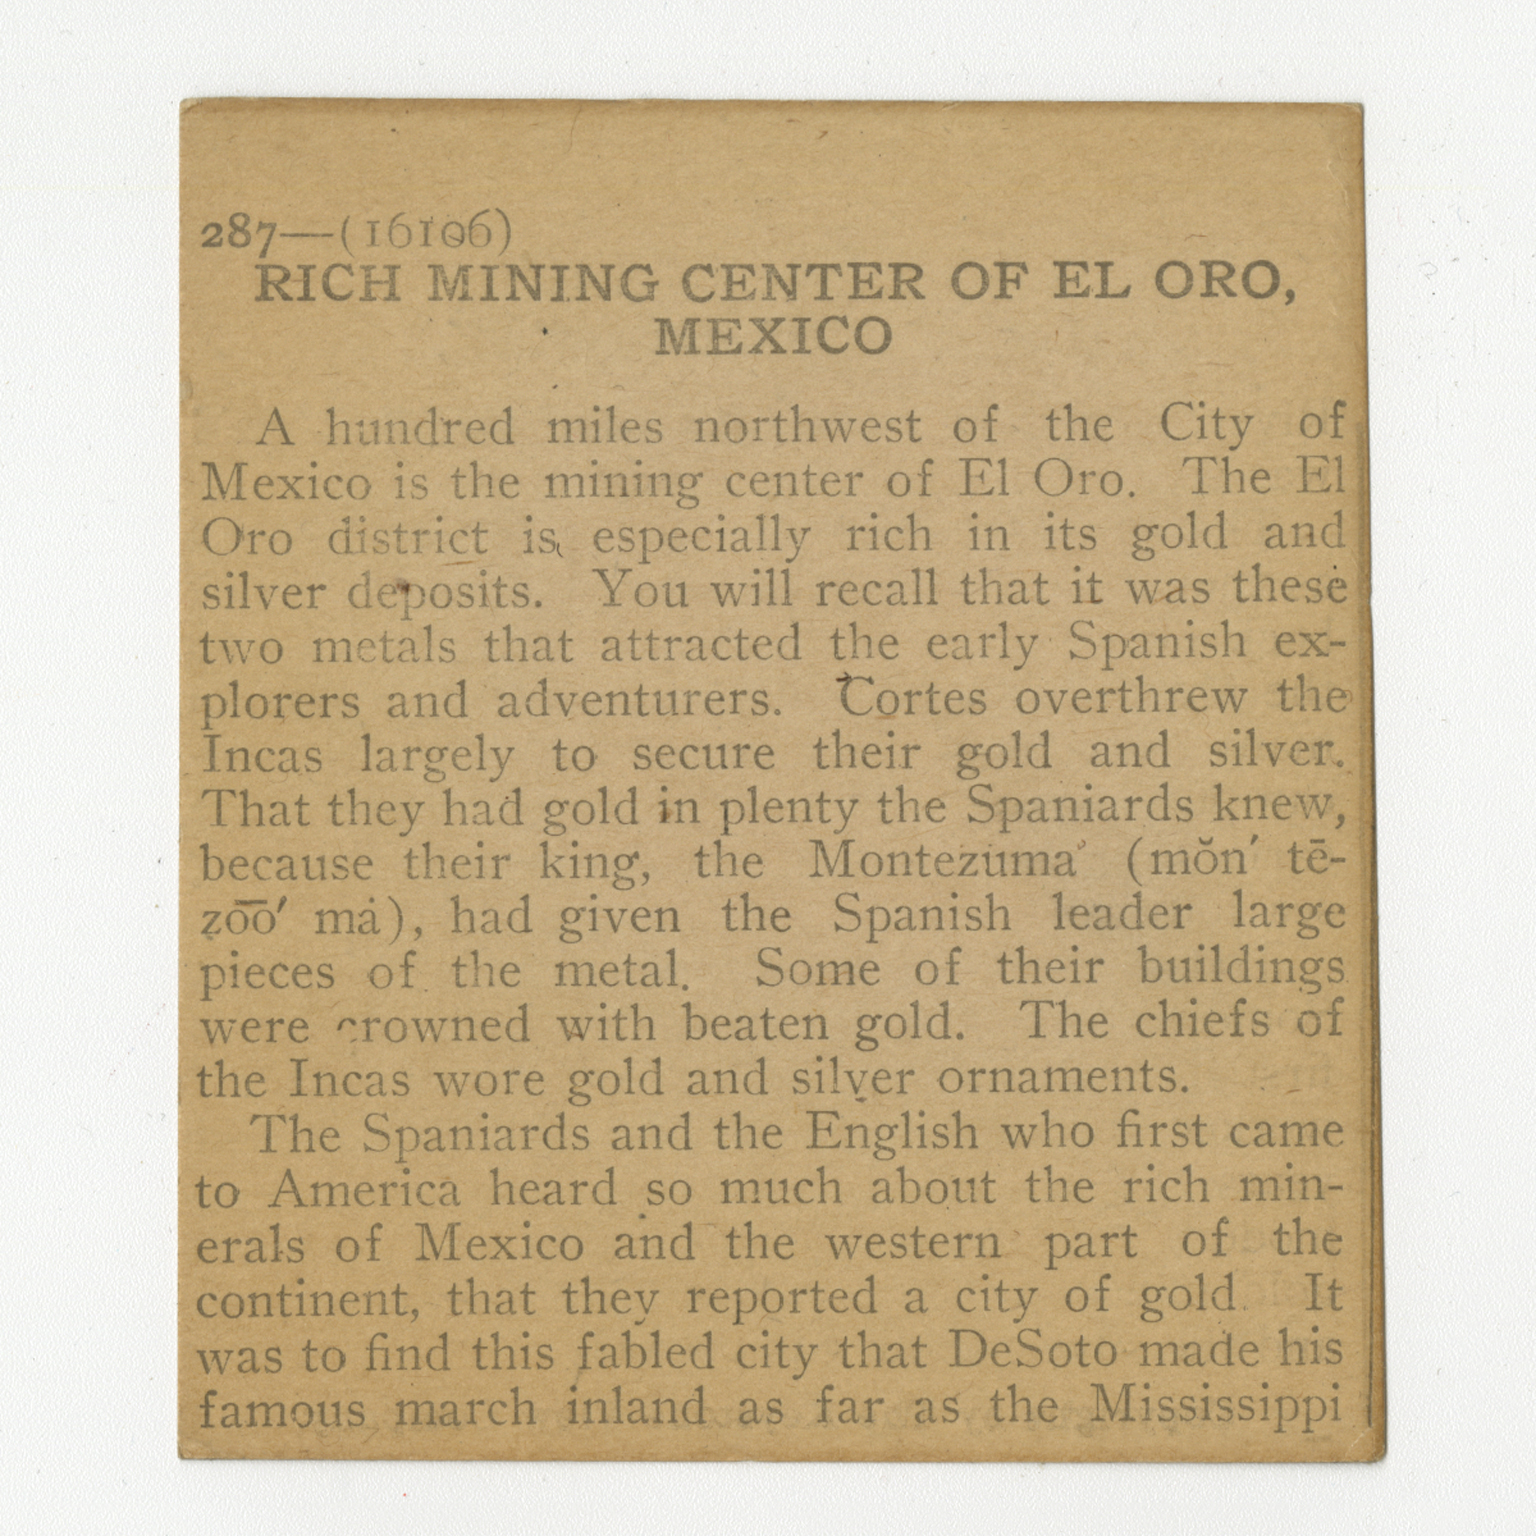 287—(16106)
RICH MINING CENTER OF EL ORO,
MEXICO
A hundred miles northwest of the City of
Mexico is the mining center of El Oro. The El
Oro district is especially rich in its gold and
silver deposits. You will recall that it was these
two metals that attracted the early Spanish ex-
plorers and adventurers. Cortes overthrew the
Incas largely to secure their gold and silver.
That they had gold in plenty the Spaniards knew,
because their king, the Montezuma (mŏn′ tē-
zo͞o′ mȧ), had given the Spanish leader large
pieces of the metal. Some of their buildings
were crowned with beaten gold. The chiefs of
the Incas wore gold and silver ornaments.
The Spaniards and the English who first came
to America heard so much about the rich min-
erals of Mexico and the western part of the
continent, that they reported a city of gold. It
was to find this fabled city that DeSoto made his
famous march inland as far as the Mississippi